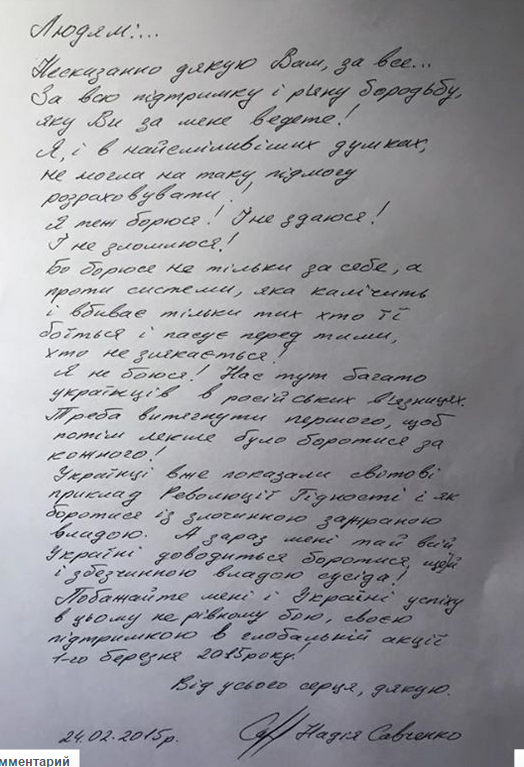 Людям:...
Несказанно дякую Вам, за все...
За всю підтримку і рʼяну бородьбу,
яку Ви за мене ведете!
Я, і в найсміливіших думках,
не могла на таку підмогу
розраховувати!
Я теж борюся! І не здаюся!
І не зломлюся!
Бо борюсе не тільки за себе, а
проти системи, яка калічить
і вбиває тільки тих хто її
боїться і пасує перед тими,
хто не злякається!
Я не боюся! Нас тут багато
українців в російських вʼязницях.
Треба витягнути першого, щоб
потім легше було боротися за
кожного!
Українці вже показали світові
приклад Революції Гідності і як
боротися із злочинною зажраною
владою. А зараз мені тай всій
Україні доводиться боротися, щей
і збезчинною владою сусіда!
Побажайте мені і Україні успіху
в цьому не рівному бою, своєю
підтримкою в глобальній акції
1-го березня 2015року!
Від усього серця, дякую.
24.02.2015р. Надія Савченко
мментарий